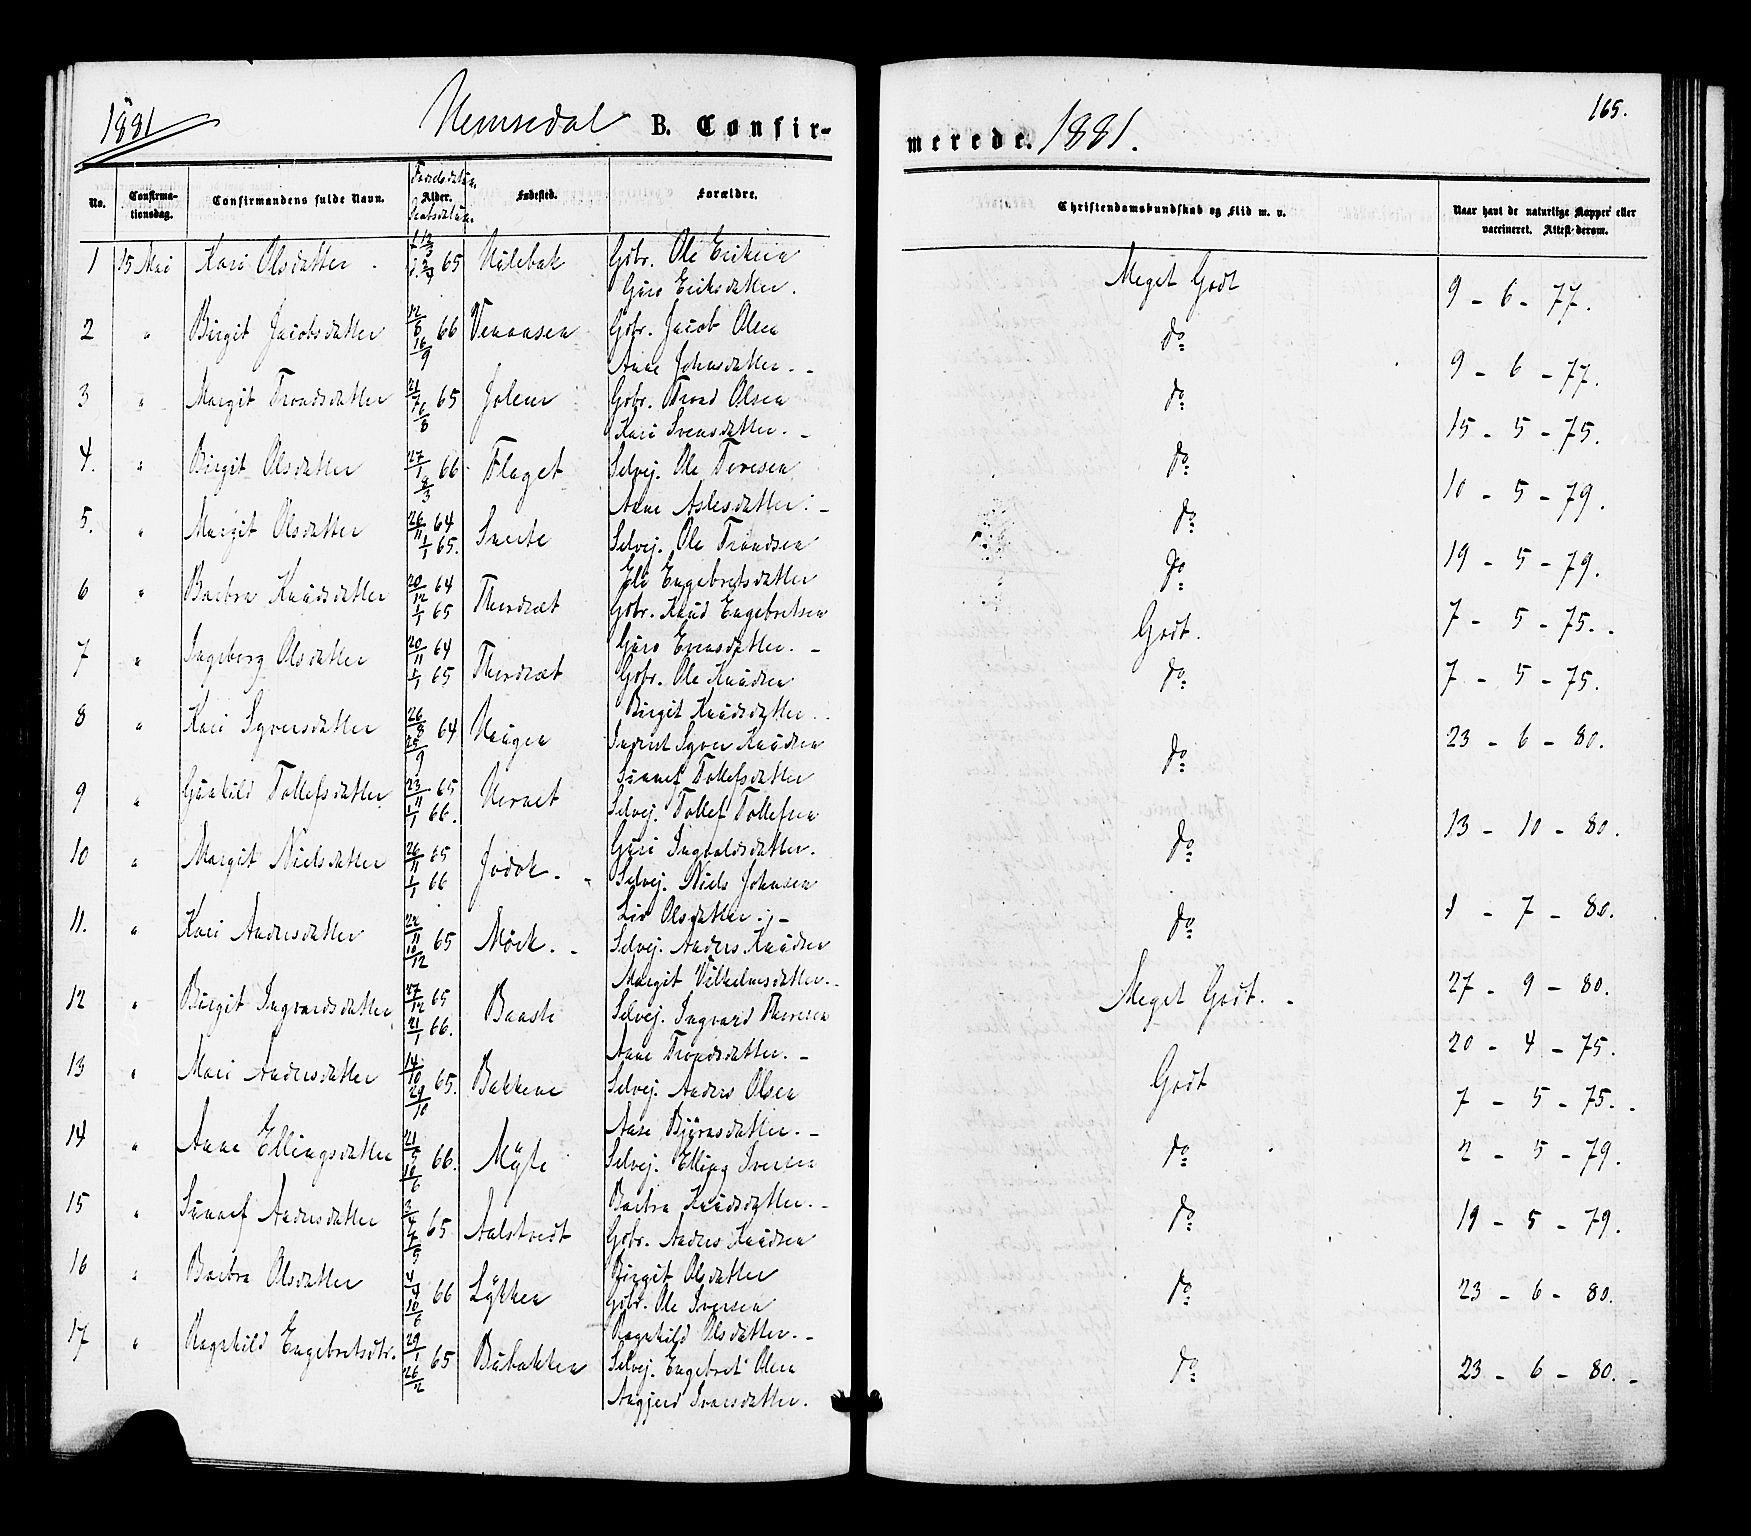 1881
Hemsedal B. Confir-
merede. 1881.
165.
No.
Confirma-
tionsdag.
Confirmandens fulde Navn.
Fødselsdatum.
Alder.
Daabsdatum.
Fødested.
Forældre.
Christendomskundskab og Flid m. v.
Naar havt de naturlige Kopper eller
vaccineret. Attest derom.
1 15 Mai Kari Olsdatter 65 Gbbr. Ole Eriksen
Guro Eriksdatter.
Meget Godt 9 - 6 - 77.
2 " Birgit Jacobsdatter 12/8 16/9 66 Gbbr. Jacob Olsen
Anne Johnsdatter. -
do 9 - 6 - 77.
3 " Margit Trondsdatter 21/7 6/8 65 Gbbr. Trond Olsen
Kari Svensdatter. -
do 15 - 5 - 75.
4. " Birgit Olsdatter 27/1 8/3 66 Flaget Selvej. Ole Toresen
Anne Aslesdatter. -
do 10 - 5 - 79.
5. " Margit Olsdatter 26/11 64 1/1 65. Selvej. Ole Trondsen
Eli Engebretsdatter
do 19 - 5 - 79.
6 " Barbra Knudsdatter 20/12 64 1/1 65 Gbbr. Knud Engebretsen
Guro Evensdatter. -
do 7 - 5 - 75.
7 " Ingeborg Olsdatter 20/11 64 1/1 65 Gbbr. Ole Knudsen
Birgit Knudsdatter.
Godt. 7 - 5 - 75.
8 " Kari Syversdatter 26/8 25/9 64 Haugen Inderst Syver Knudsen
Sunnef Tollefsdatter
do 23 - 6 - 80.
9 " Gunhild Tollefsdatter 23/11 65 1/1 66. Selvej. Tollef Tollefsen
Guri Ingvaldsdatter.
do 13 - 10 - 80.
10 " Margit Nielsdatter 26/11 65 1/1 66 Selvej. Niels Johnsen
Liv Olsdatter. -
do 7 - 80.
11. " Kari Andersdatter 10/12 65 Mørk. - Selvej. Anders Knudsen
Margit Vilhelmsdatter.
do 27 - 9 - 80.
12 " Birgit Ingvardsdatter 27/12 65 21/1 66. Selvej. Ingvard Thoresen
Anne Trondsdatter. -
Meget Godt. - 20 - 4 - 75.
13 " Mari Andersdatter 14/10 29/10 65. Bakkene Selvej. Anders Olsen
Aase Bjørnsdatter. -
Godt 7 - 5 - 75. -
14 " Anne Ellingsdatter 21/5 10/6 66. Selvej. Elling Iversen
Barbra Knudsdatter. -
do 2 - 5 - 79.
15 " Sunnef Andersdatter 65 Gbbr. Anders Knudsen
Birgit Olsdatter
do 19 - 5 - 79.
16 " Barbra Olsdatter 66 Lykken Gbbr. Ole Iversen
Ragnhild Olsdatter. -
do 23 - 6 - 80.
17 " Ragnhild Engebretsdtr. 29/1 26/2 65 Bubakken Selvej. Engebret Olsen
Angjerd Ivarsdatter.
do 23 - 6 - 80. -